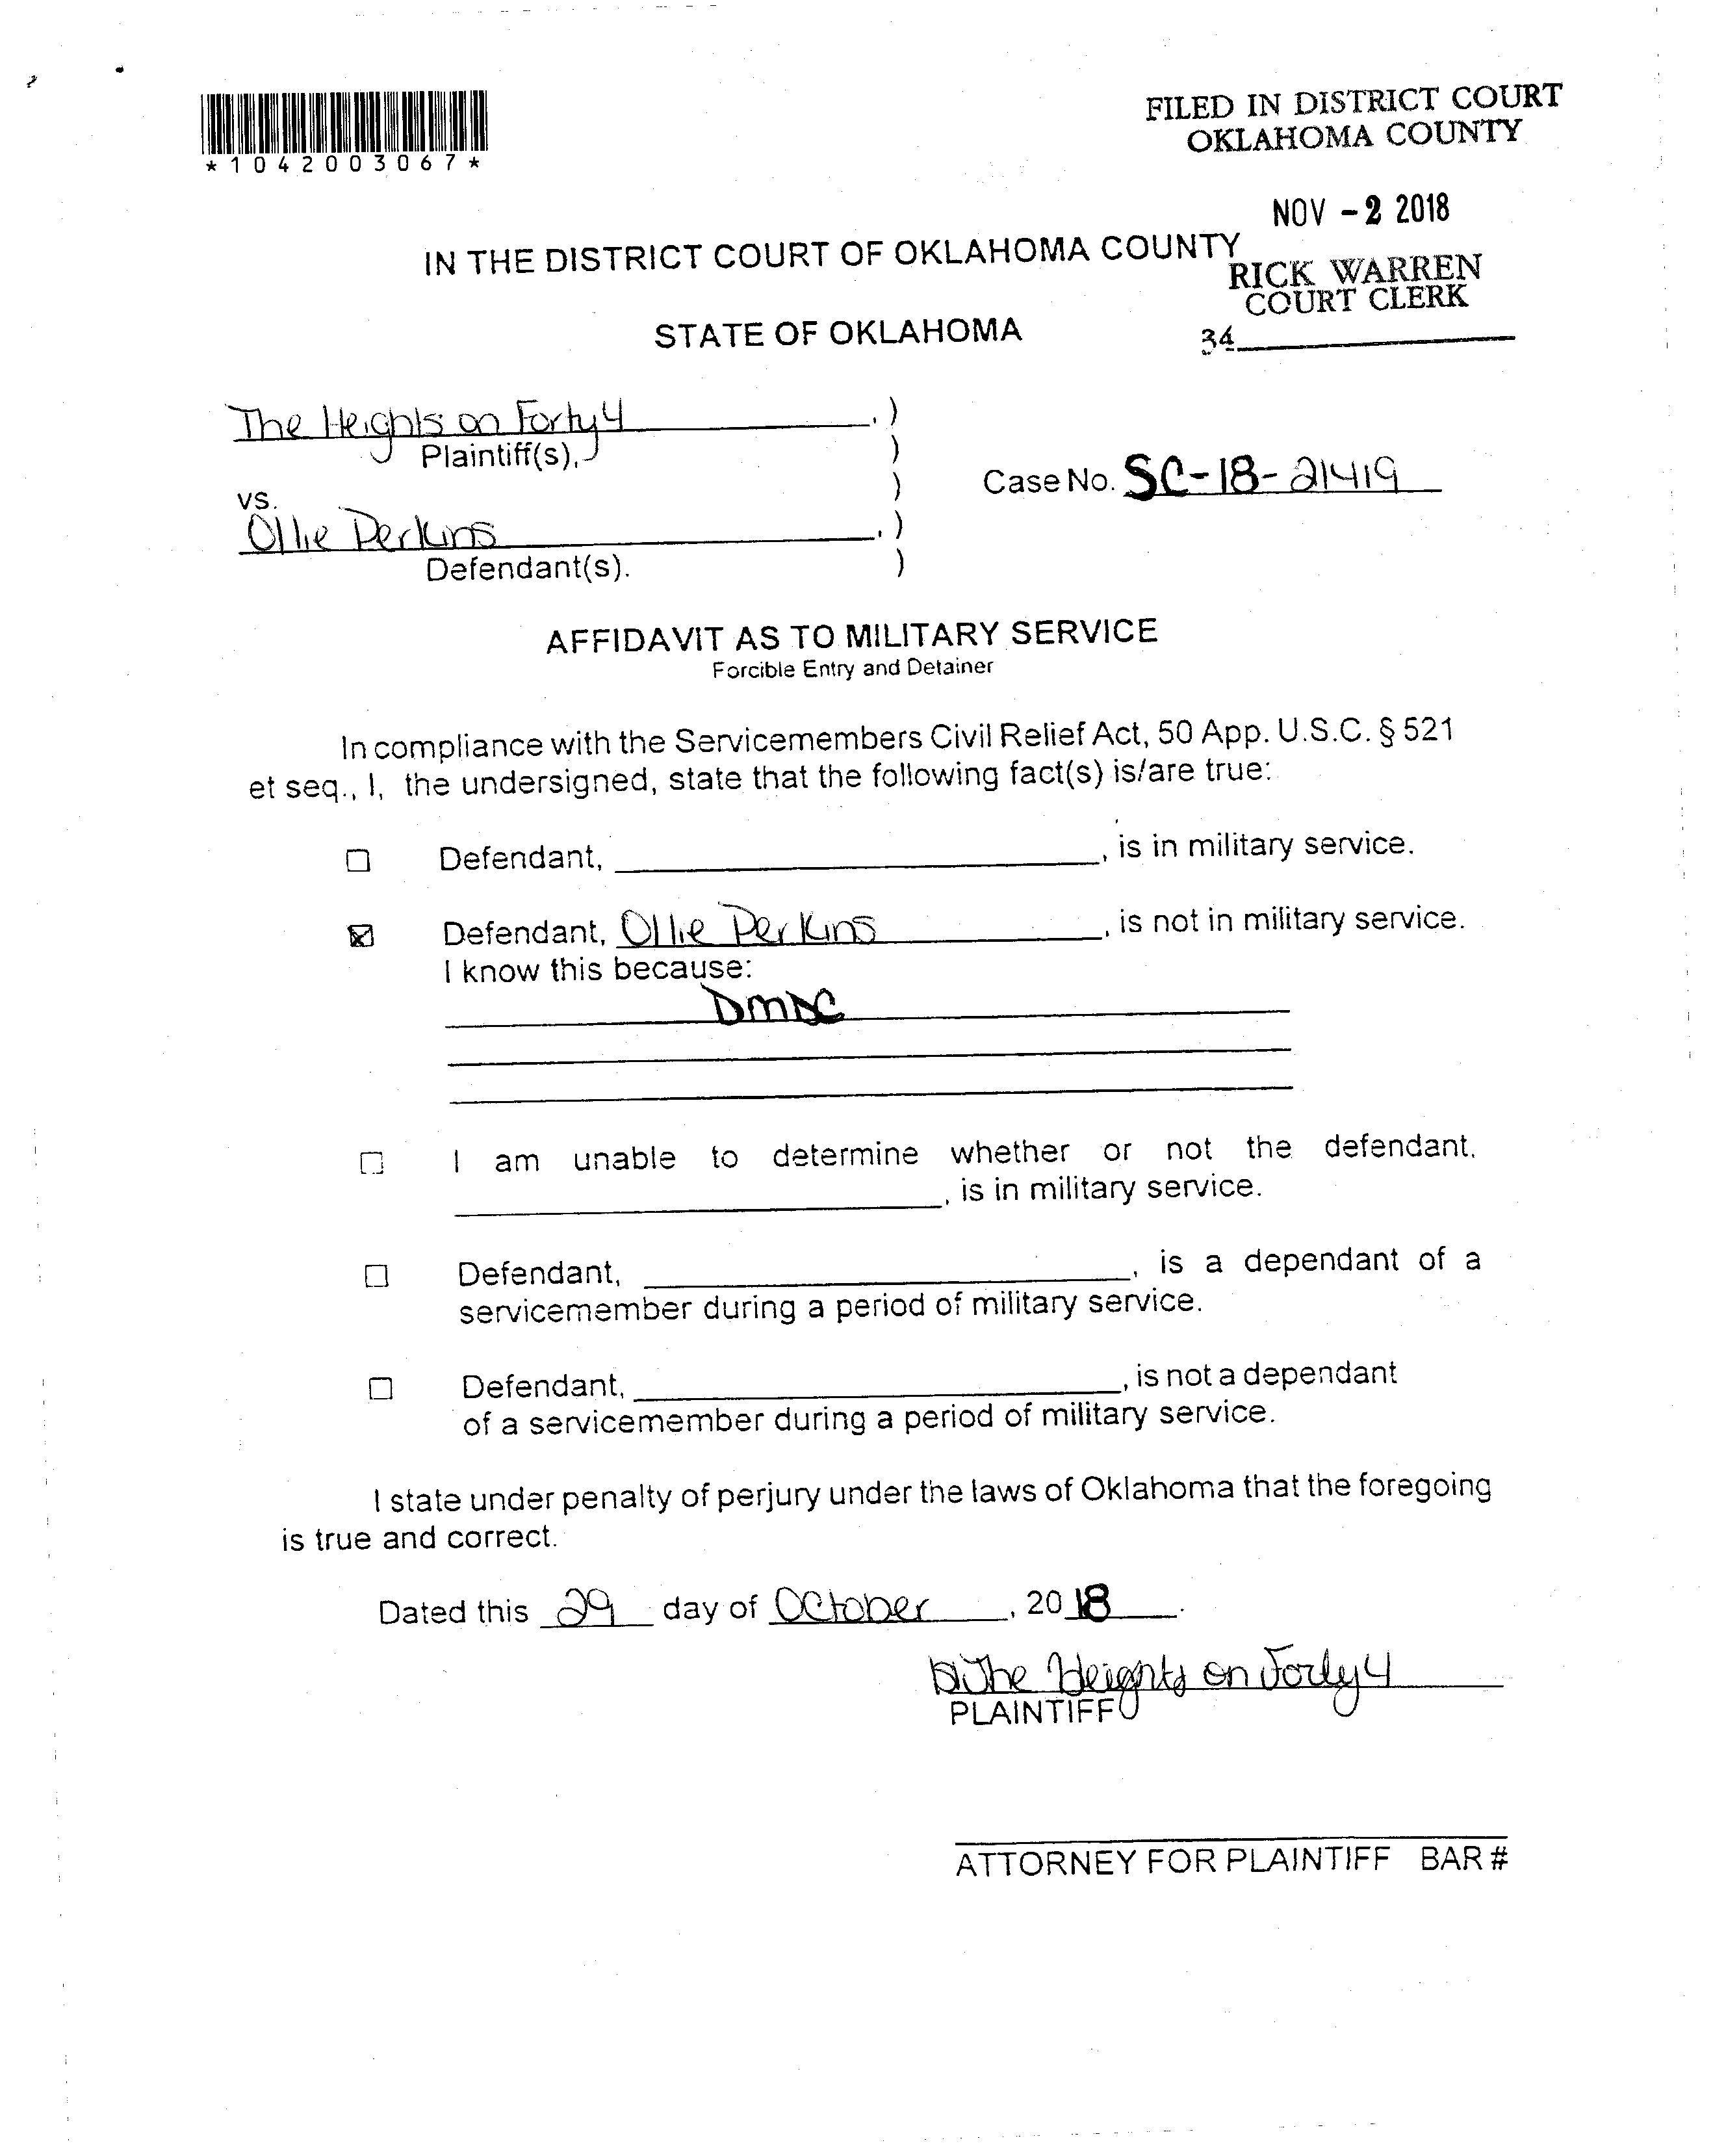 *1042003067*
FILED IN DISTRICT COURT
OKLAHOMA COUNTY
NOV - 2 2018
RICK WARREN
COURT CLERK
34
IN THE DISTRICT COURT OF OKLAHOMA COUNTY
STATE OF OKLAHOMA
The Heights on Forty4 , )
Plaintiff(s), )
)
vs.
Case No. SC-18-21419
Ollie Perkins , )
Defendant(s). )
AFFIDAVIT AS TO MILITARY SERVICE
Forcible Entry and Detainer
In compliance with the Servicemembers Civil Relief Act, 50 App. U.S.C. § 521
et seq., I, the undersigned, state that the following fact(s) is/are true:
Defendant, , is in military service.
Defendant, Ollie Perkins , is not in military service.
I know this because:
DMDC
I am unable to determine whether or not the defendant,
, is in military service.
Defendant, , is a dependant of a
servicemember during a period of military service.
Defendant, , is not a dependant
of a servicemember during a period of military service.
I state under penalty of perjury under the laws of Oklahoma that the foregoing
is true and correct.
Dated this 29 day of October , 2018 .
The Heights on Forty4
PLAINTIFF
ATTORNEY FOR PLAINTIFF BAR #